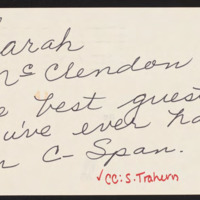 arah
McClendon
e best gues
u've ever ha
n C-Span.
✓CC: S. Trahern